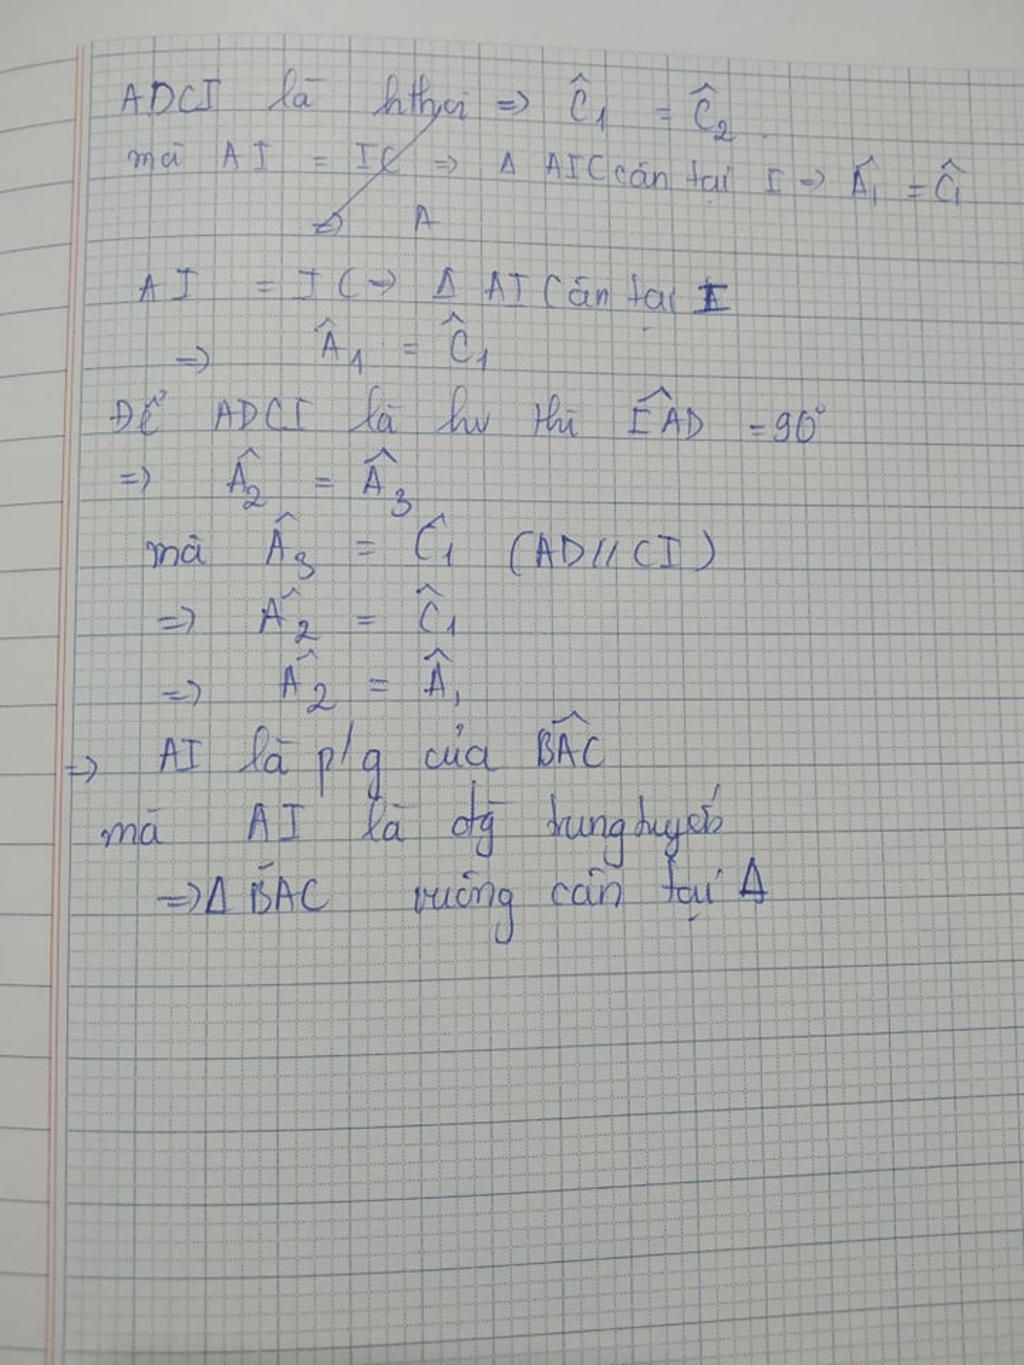 ADCI là hthoi => Ĉ₁ = Ĉ₂
mà AI = IC => Δ AIC cân tại I => Â₁ = Ĉ₁
=> A
AI = IC => Δ AIC cân tại I
=> Â₁ = Ĉ₁
Để ADCI là hv thì IAD̂ = 90°
=> Â₂ = Â₃
mà Â₃ = Ĉ₁ (AD // CI)
=> Â₂ = Ĉ₁
=> Â₂ = Â₁
=> AI là p/g của BÂC
mà AI là đg trung tuyến
=> Δ BAC vuông cân tại A